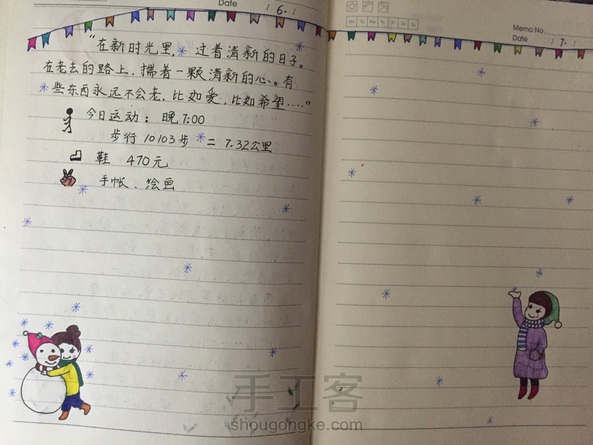 Date
( 6 · )
Memo No.
Date ( 7 · )
"在新时光里,过着清新的日子。
在老去的路上,揣着一颗清新的心。有
些东西永远不会老,比如爱,比如希望....."
今日运动:晚7:00
步行10103步 = 7.32公里
鞋 470元
手帐、绘画
手工客
shougongke.com